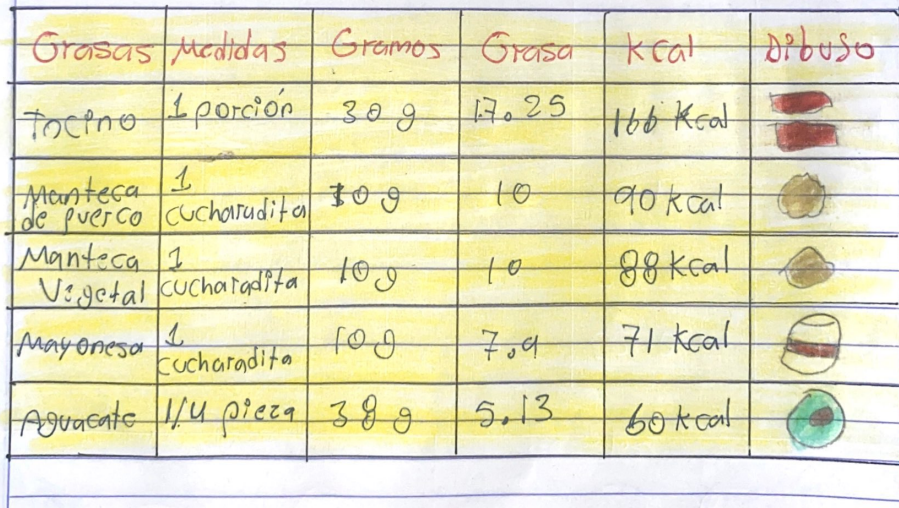 Grasas Medidas Gramos Grasa Kcal Dibujo
Tocino 1 porción 30 g 17.25 166 Kcal
Manteca de puerco 1 cucharadita 10 g 10 90 Kcal
Manteca Vegetal 1 cucharadita 10 g 10 88 Kcal
Mayonesa 1 cucharadita 10 g 7.9 71 Kcal
Aguacate 1/4 pieza 38 g 5.13 60 Kcal